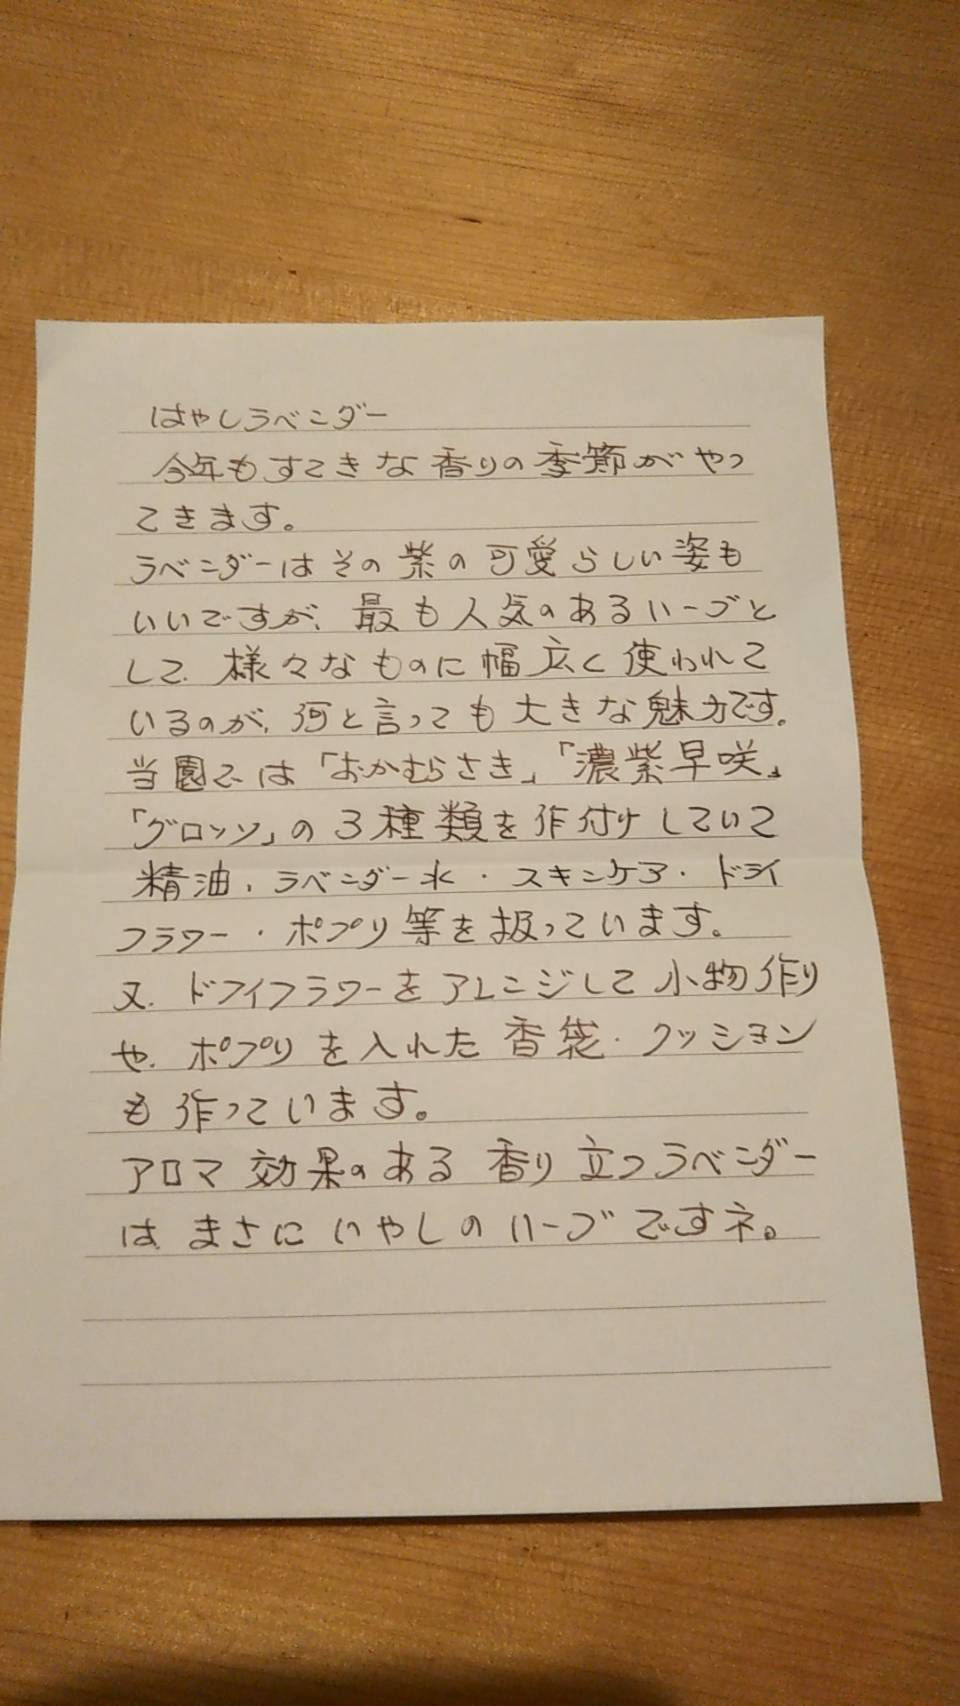 はやしラベンダー
今年もすてきな香りの季節がやっ
てきます。
ラベンダーはその紫の可愛らしい姿も
いいですが、最も人気のあるハーブと
して、様々なものに幅広く使われて
いるのが、何と言っても大きな魅力です。
当園では「おかむらさき」「濃紫早咲」
「グロッソ」の3種類を作付けしていて
精油、ラベンダー水・スキンケア・ドライ
フラワー・ポプリ等を扱っています。
又、ドライフラワーをアレンジして小物作り
や、ポプリを入れた香袋・クッション
も作っています。
アロマ効果のある香り立つラベンダー
は、まさにいやしのハーブですネ。